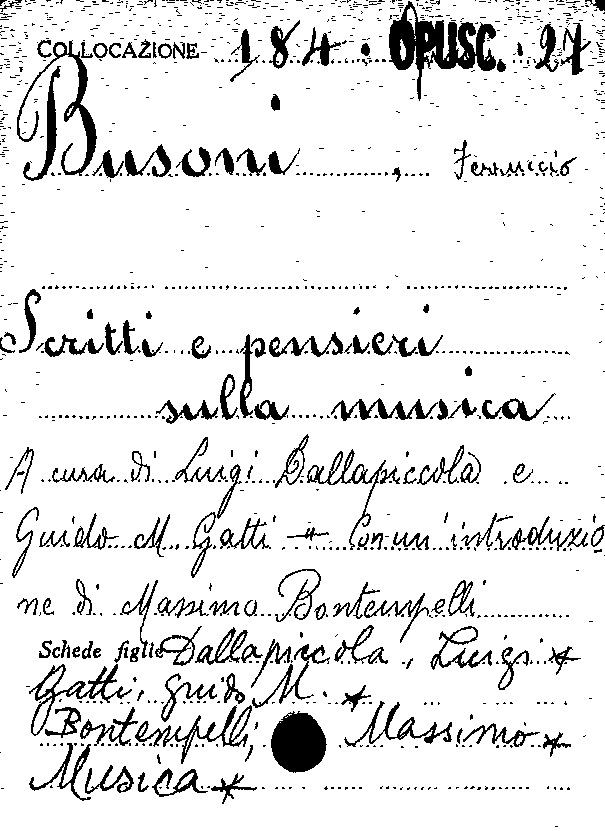 COLLOCAZIONE 184 · OPUSC. · 27
Busoni, Ferruccio
Scritti e pensieri
sulla musica
A cura di Luigi Dallapiccola e
Guido M. Gatti - Con un'introduzio
ne di Massimo Bontempelli
Schede figlie Dallapiccola, Luigi *
Gatti, Guido M. *
Bontempelli, Massimo *
Musica *